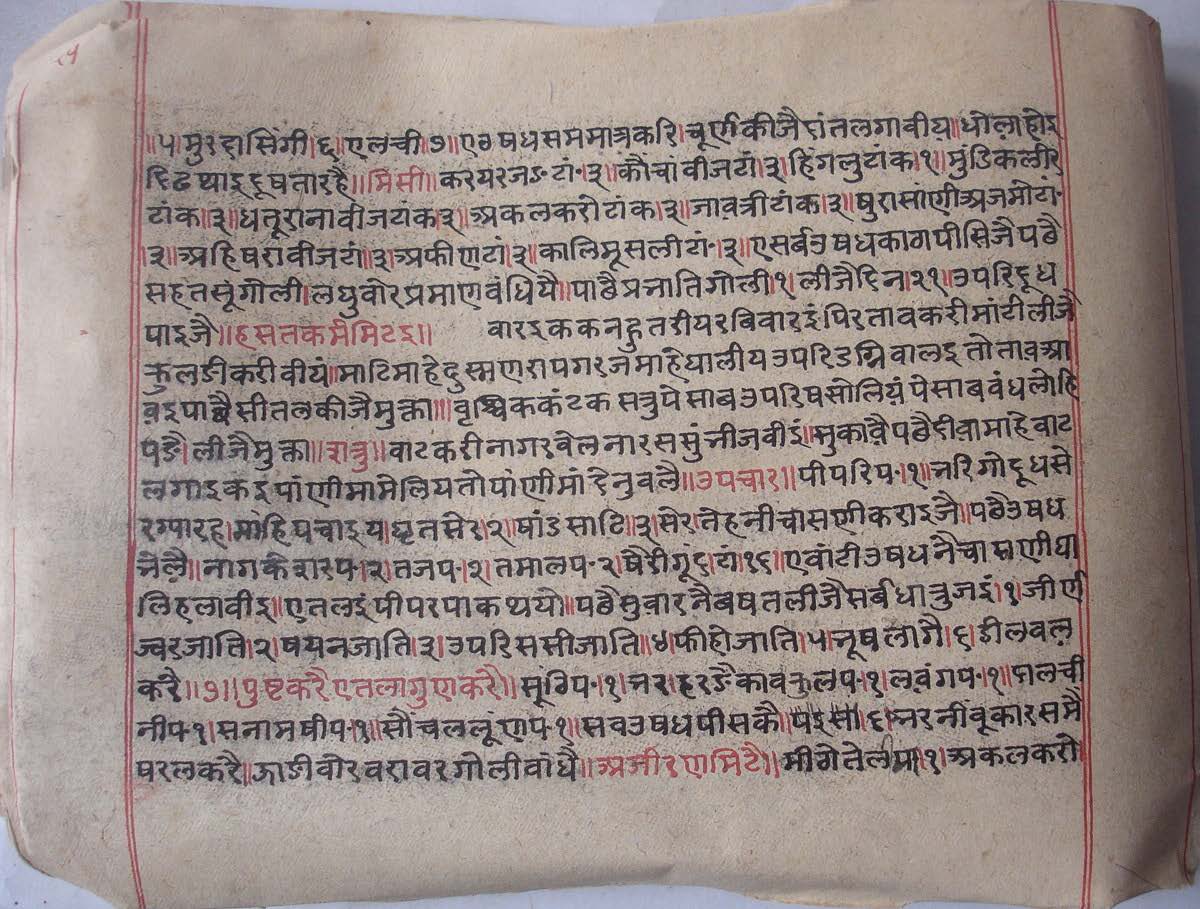 ॥५।मुरदासिंगी।६।एलची।७।एउषधसममात्रकरि।चूर्णकीजैदांतलगावीय॥धोलाहोइ
दिढथाइदूषतारहै॥मिसी॥करयरजङ·टां·३।कौचांवीजटां।३।हिंगलुटांक।१।मुंडिकलीर
टांक।३।धतूरानावीजटांक।३।अकलकरोटांक।३।जावत्रीटांक।३।षुरासांणीअजमोटां·
।३।अहिषरांवीजटां।३।अफीणटां।३।कालिमूसलीटां·।३।एसर्बउषधकागपीसिजैपछै
सहतसूंगोली।लघुवोरप्रमाणवंधियै॥पाछैप्रनातिगोली।१।लीजैदिन।२१।उपरिदूध
पाइजै॥हसतकर्ममिटइ॥ वारइककनहुतडीयरबिवारइंपिरतावकरीमांटीलीजै
कुलडीकरीवीयं॥माटिमाहेदुस्मणरापगरजमाहेघालीयउपरिडग्निवालइतोतावआ
वइपाछैसीतलकीजैमुक्ता॥वृश्चिककंटकसत्रुपेसाबउपरिषसोलियंपेसाबवंधलोहि
पडै।लीजैमुक्ता॥शत्रु॥वाटकरीनागरवेलनारससुंन्नीजवीइं।सुकावैपछैदीवामाहेवाट
लगाइकइपांणीमामेलियतोपांणीमांदेनुवलै॥उपचार॥पीपरिप·।१।नरिगोदूधसे
रग्यारह।मांहिपचाइय।घृतसेर२।षांडसाटि।३।सेर।तेहनीचासणीकराइजै॥पछैउषध
नेलै॥नागकेशरप·।२।तजप·।२।तमालप·२।षैरीगूंद।टां।१६।एवांटीउषधनैचास्नणीघा
लिहलावीइ॥एतलइंपीपरपाकथयो॥पछैसुवारनैबषतलीजैसर्बधात्रुजइं।१।जीर्ण
ज्वरजाति।२।षयनजाति।३।उपरिससीजाति॥४।फीहोजाति।५।नूषलागै।६।डीलवल
करै॥७॥पुष्टकरैएतलागुणकरै॥सूंठिप·।१।नरहरडैकावकुलप·।१।लवंगप·।१॥दालची
नीप·१।सनामषीप·।१।सौंचललूंणप·१।सवउषधपीसकै।पइसा।६।नरनींवूकारसमै
षरलकरै।जाडीवोरवरावरगोलीवांधै॥अजीरणमिटै॥मीगेतेलपा।१।अकलकरो